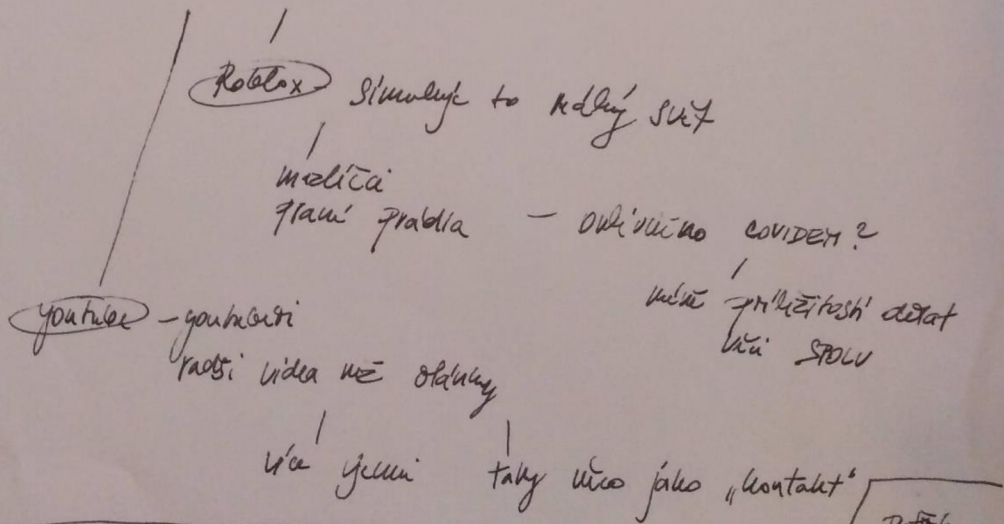 Roblox simuluje to reálný svět
mazlíčci
praní prádla – ovlivněno COVIDEM?
méně příležitostí dělat
věci SPOLU
youtube – youtubeři
radši videa než články
více taky něco jako „kontakt“